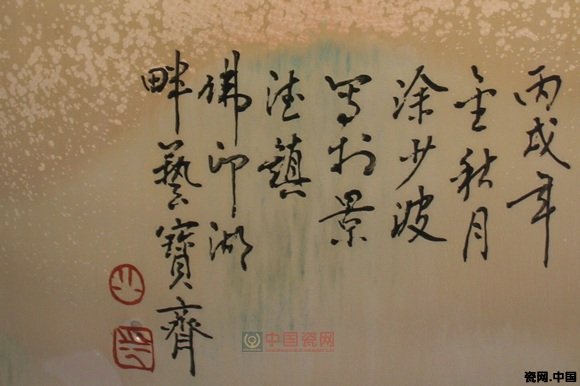 丙戌年
金秋月
涂少波
写於景
德镇
佛印湖
畔藝寶齊
中国瓷网
瓷网.中国